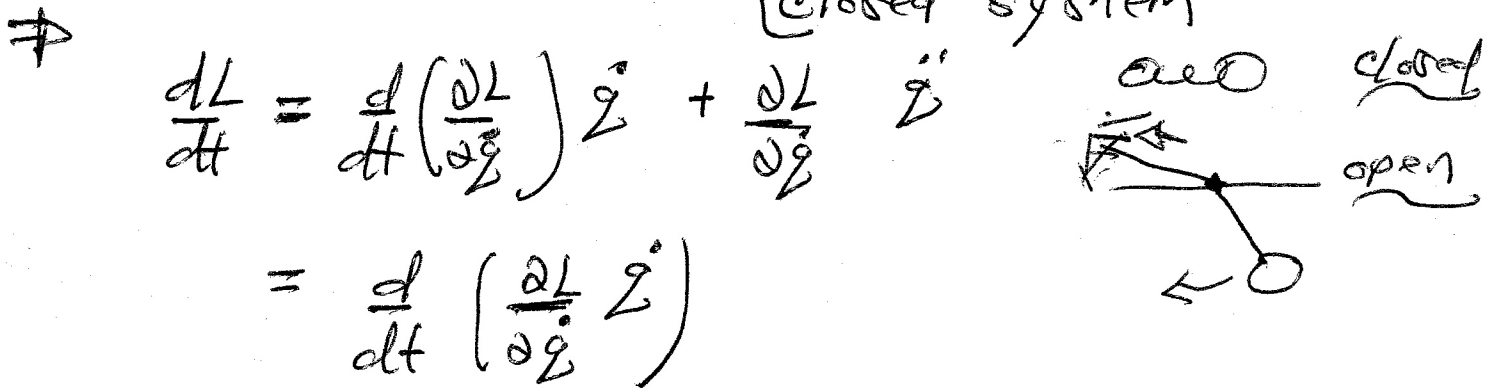 [closed system
⇒
dL/dt = d/dt (∂L/∂q̇) q̇ + ∂L/∂q̇ q̈
= d/dt (∂L/∂q̇ q̇)
closed
open